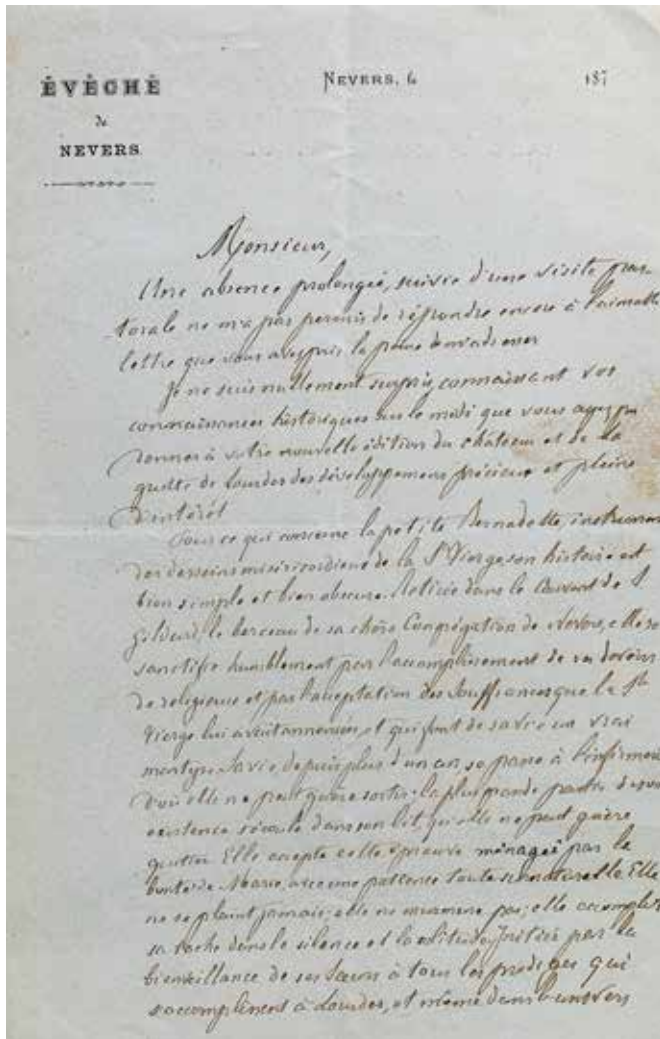 ÉVÊCHÉ
de
NEVERS.
NEVERS, le 187
Monsieur,
Une absence prolongée, suivie d'une visite pas-
torale ne m'a pas permis de répondre encore à l'aimable
lettre que vous avez pris la peine de m'adresser
Je ne suis nullement surpris, connaissant vos
connaissances historiques sur le midi que vous ayez pu
donner à votre nouvelle édition du château et de la
grotte de Lourdes des développemens précieux et pleins
d'intérêt
Pour ce qui concerne la petite Bernadette, instrument
des desseins miséricordieux de la Ste Vierge son histoire est
bien simple et bien obscure. Retirée dans le Couvent de St
Gildard, le berceau de sa chère Congrégation de Nevers, elle se
sanctifie humblement par l'accomplissement de ses devoirs
de religieuse et par l'acceptation des souffrances que la Ste
Vierge lui avait annoncées, et qui font de sa vie un vrai
martyre. Sa vie depuis plus d'un an, se passe à l'infirmerie
d'où elle ne peut guère sortir; la plus grande partie de son
existence s'écoule dans son lit, qu'elle ne peut guère
quitter. Elle accepte cette épreuve ménagée par la
bonté de Marie, avec une patience toute surnaturelle. Elle
ne se plaint jamais; elle ne murmure pas; elle accomplit
sa tache dans le silence et la solitude, initiée par la
bienveillance de ses Sœurs à tous les prodiges qui
s'accomplissent à Lourdes, et même dans l'univers